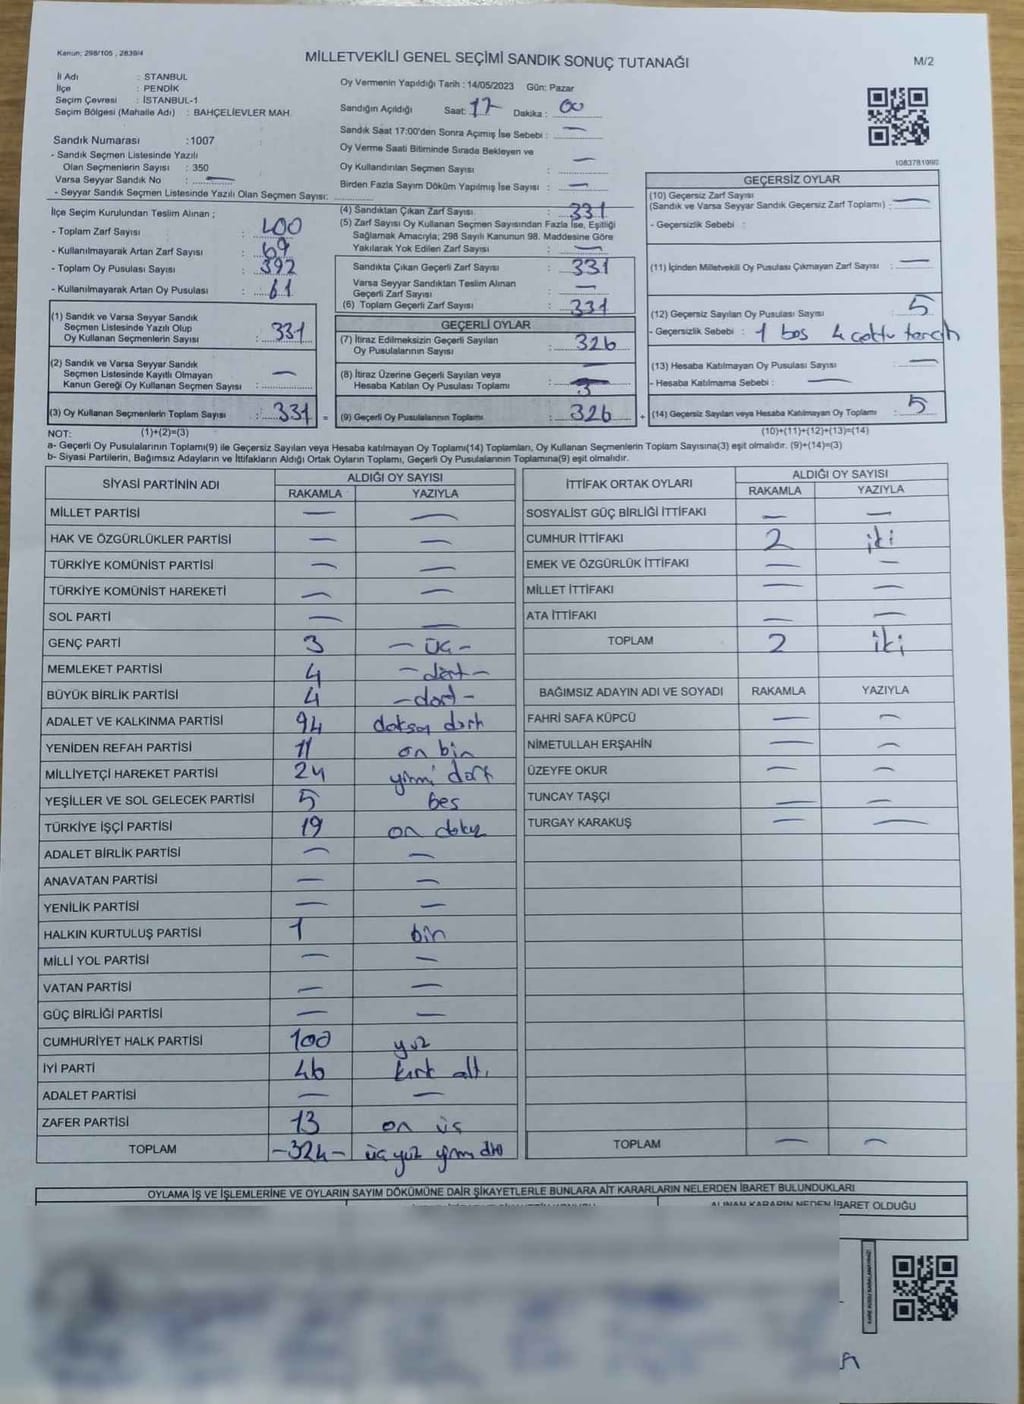 Kanun: 298/105 , 2839/4
MİLLETVEKİLİ GENEL SEÇİMİ SANDIK SONUÇ TUTANAĞI
M/2
İl Adı : STANBUL
İlçe : PENDİK
Seçim Çevresi : İSTANBUL-1
Seçim Bölgesi (Mahalle Adı) : BAHÇELİEVLER MAH.
Sandık Numarası :1007
- Sandık Seçmen Listesinde Yazılı
Olan Seçmenlerin Sayısı : 350
Varsa Seyyar Sandık No : —
- Seyyar Sandık Seçmen Listesinde Yazılı Olan Seçmen Sayısı:
Oy Vermenin Yapıldığı Tarih : 14/05/2023 Gün: Pazar
Sandığın Açıldığı Saat: 17 Dakika : 00
Sandık Saat 17:00'den Sonra Açımış İse Sebebi : —
Oy Verme Saati Bitiminde Sırada Bekleyen ve
Oy Kullandırılan Seçmen Sayısı : —
Birden Fazla Sayım Döküm Yapılmış İse Sayısı : —
1083781990
İlçe Seçim Kurulundan Teslim Alınan ;
- Toplam Zarf Sayısı : 400
- Kullanılmayarak Artan Zarf Sayısı : 69
- Toplam Oy Pusulası Sayısı : 392
- Kullanılmayarak Artan Oy Pusulası : 61
(1) Sandık ve Varsa Seyyar Sandık
Seçmen Listesinde Yazılı Olup
Oy Kullanan Seçmenlerin Sayısı : 331
(2) Sandık ve Varsa Seyyar Sandık
Seçmen Listesinde Kayıtlı Olmayan
Kanun Gereği Oy Kullanan Seçmen Sayısı : —
(3) Oy Kullanan Seçmenlerin Toplam Sayısı : 331 =
(4) Sandıktan Çıkan Zarf Sayısı : 331
(5) Zarf Sayısı Oy Kullanan Seçmen Sayısından Fazla İse, Eşitliği
Sağlamak Amacıyla; 298 Sayılı Kanunun 98. Maddesine Göre
Yakılarak Yok Edilen Zarf Sayısı : —
Sandıkta Çıkan Geçerli Zarf Sayısı : 331
Varsa Seyyar Sandıktan Teslim Alınan
Geçerli Zarf Sayısı : —
(6) Toplam Geçerli Zarf Sayısı : 331
GEÇERLİ OYLAR
(7) İtiraz Edilmeksizin Geçerli Sayılan
Oy Pusulalarının Sayısı : 326
(8) İtiraz Üzerine Geçerli Sayılan veya
Hesaba Katılan Oy Pusulası Toplamı : —
(9) Geçerli Oy Pusulalarının Toplamı : 326 +
GEÇERSİZ OYLAR
(10) Geçersiz Zarf Sayısı
(Sandık ve Varsa Seyyar Sandık Geçersiz Zarf Toplamı) : —
- Geçersizlik Sebebi :
(11) İçinden Milletvekili Oy Pusulası Çıkmayan Zarf Sayısı : —
(12) Geçersiz Sayılan Oy Pusulası Sayısı : 5
- Geçersizlik Sebebi : 1 bos 4
(13) Hesaba Katılmayan Oy Pusulası Sayısı : —
- Hesaba Katılmama Sebebi : —
(14) Geçersiz Sayılan veya Hesaba Katılmayan Oy Toplamı : 5
NOT: (1)+(2)=(3) (10)+(11)+(12)+(13)=(14)
a- Geçerli Oy Pusulalarının Toplamı(9) ile Geçersiz Sayılan veya Hesaba katılmayan Oy Toplamı(14) Toplamları, Oy Kullanan Seçmenlerin Toplam Sayısına(3) eşit olmalıdır. (9)+(14)=(3)
b- Siyasi Partilerin, Bağımsız Adayların ve İttifakların Aldığı Ortak Oyların Toplamı, Geçerli Oy Pusulalarının Toplamına(9) eşit olmalıdır.
SİYASİ PARTİNİN ADI ALDIĞI OY SAYISI
RAKAMLA YAZIYLA
MİLLET PARTİSİ — —
HAK VE ÖZGÜRLÜKLER PARTİSİ — —
TÜRKİYE KOMÜNİST PARTİSİ — —
TÜRKİYE KOMÜNİST HAREKETİ — —
SOL PARTİ — —
GENÇ PARTİ 3 — üç —
MEMLEKET PARTİSİ 4 — dört —
BÜYÜK BİRLİK PARTİSİ 4 — dort —
ADALET VE KALKINMA PARTİSİ 94 doksan dört
YENİDEN REFAH PARTİSİ 11 on bir
MİLLİYETÇİ HAREKET PARTİSİ 24 yirmi dört
YEŞİLLER VE SOL GELECEK PARTİSİ 5 bes
TÜRKİYE İŞÇİ PARTİSİ 19 on dokuz
ADALET BİRLİK PARTİSİ — —
ANAVATAN PARTİSİ — —
YENİLİK PARTİSİ — —
HALKIN KURTULUŞ PARTİSİ 1 bir
MİLLİ YOL PARTİSİ — —
VATAN PARTİSİ — —
GÜÇ BİRLİĞİ PARTİSİ — —
CUMHURİYET HALK PARTİSİ 100 yüz
İYİ PARTİ 46 kırk altı
ADALET PARTİSİ — —
ZAFER PARTİSİ 13 on üç
TOPLAM -324- üç yüz yirmi dört
İTTİFAK ORTAK OYLARI ALDIĞI OY SAYISI
RAKAMLA YAZIYLA
SOSYALİST GÜÇ BİRLİĞİ İTTİFAKI — —
CUMHUR İTTİFAKI 2 iki
EMEK VE ÖZGÜRLÜK İTTİFAKI — —
MİLLET İTTİFAKI — —
ATA İTTİFAKI — —
TOPLAM 2 iki
BAĞIMSIZ ADAYIN ADI VE SOYADI RAKAMLA YAZIYLA
FAHRİ SAFA KÜPCÜ — —
NİMETULLAH ERŞAHİN — —
ÜZEYFE OKUR — —
TUNCAY TAŞÇI — —
TURGAY KARAKUŞ — —
TOPLAM — —
OYLAMA İŞ VE İŞLEMLERİNE VE OYLARIN SAYIM DÖKÜMÜNE DAİR ŞİKAYETLERLE BUNLARA AİT KARARLARIN NELERDEN İBARET BULUNDUKLARI
ALINAN KARARIN NEDEN İBARET OLDUĞU